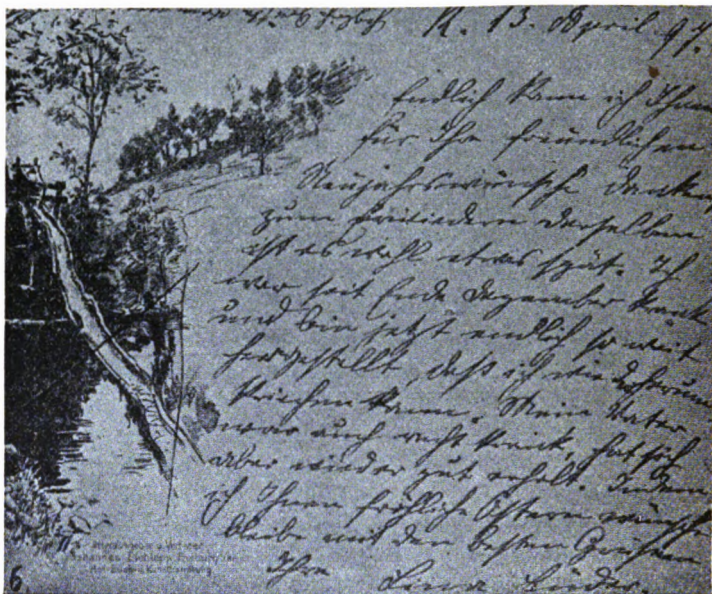 R. 13. April 97.
Endlich kann ich Ihnen
für Ihre freundlichen
Neujahrswünsche danken,
zum Erwiedern derselben
ist es wohl etwas spät. Ich
war seit Ende Dezember krank
und bin jetzt endlich so weit
hergestellt, daß ich wiederum
kriechen kann. Mein Vater
war auch recht krank, hat sich
aber wieder gut erholt. Indem
ich Ihnen fröhliche Ostern wünsche
bleibe mit den besten Grüßen
Ihre Lina
6